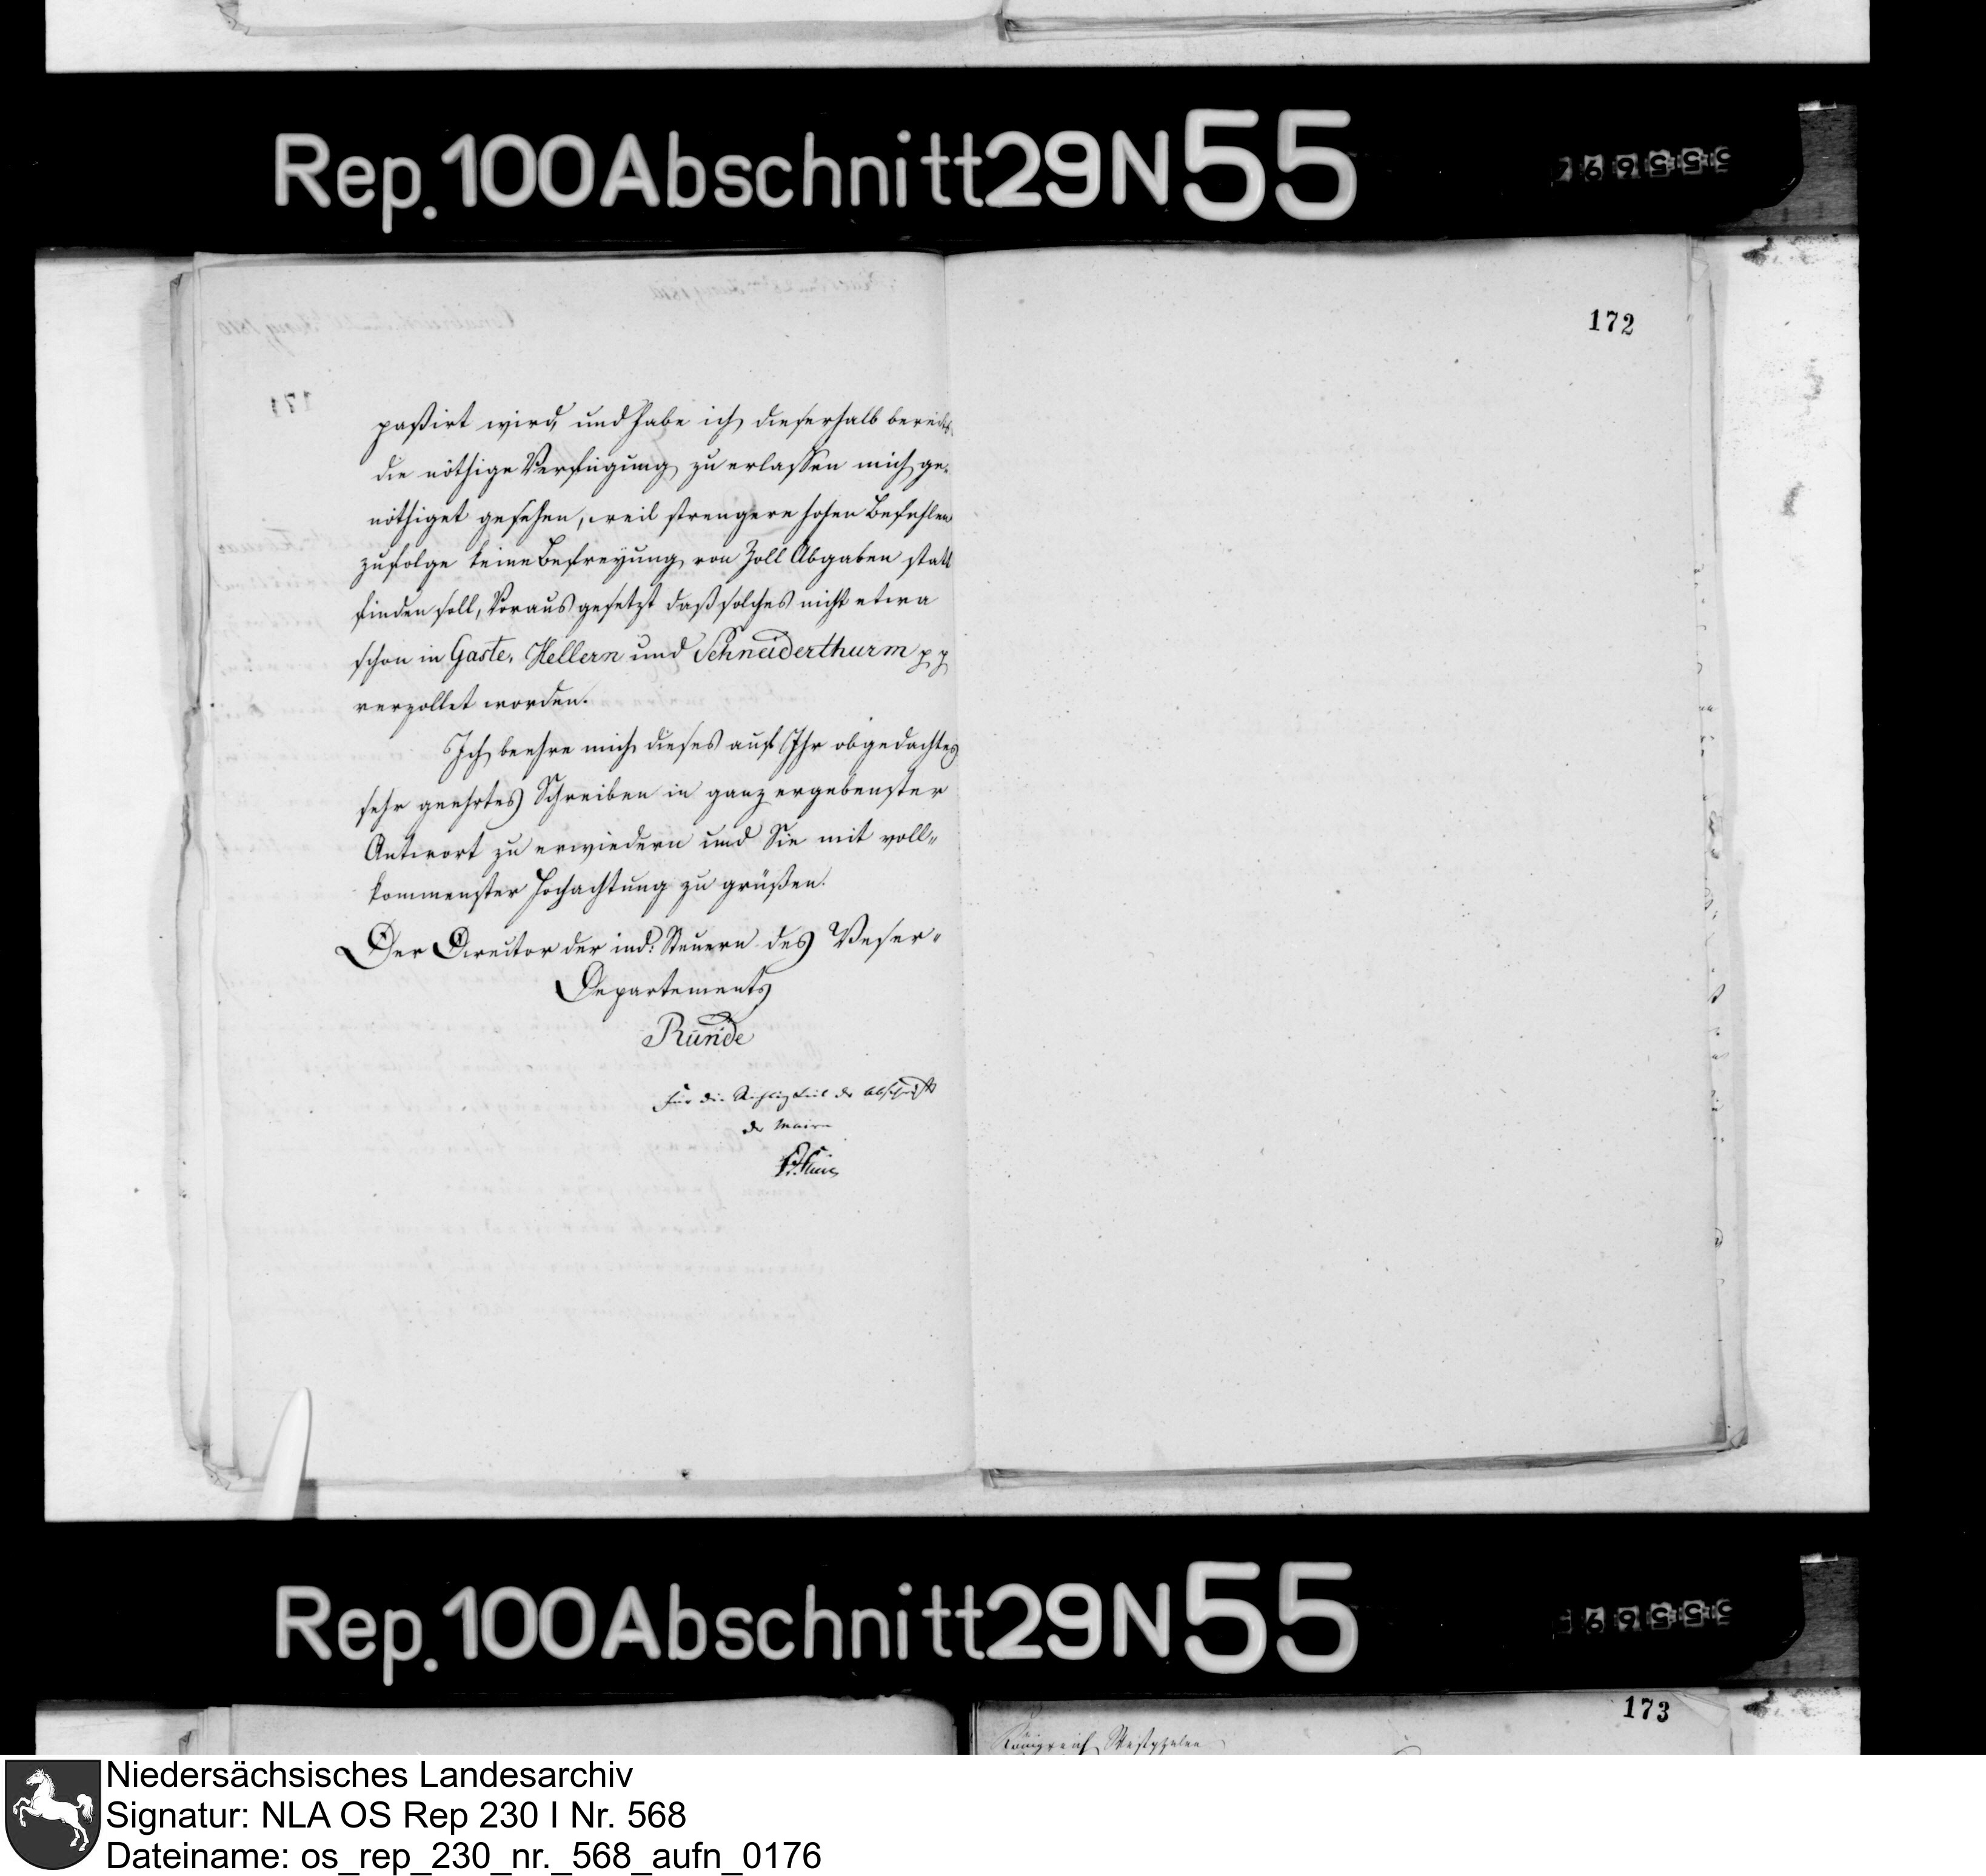 Rep. 100 Abschnitt 29 N 55
172
171
paßirt wird, und habe ich dieserhalb bereits
die nöthige Verfügung zu erlassen mich ge-
nöthiget gesehen, weil strengere hohen Befehlen
zufolge keine Befreyung von Zoll Abgaben statt
finden soll, Voraus gesetzt daß solches nicht etwa
schon in Gaste, Hellern und Schneiderthurm pp
verzollet worden.
Ich beehre mich dieses auf Ihr obgedachtes
sehr geehrtes Schreiben in ganz ergebenster
Antwort zu erwiedern und Sie mit voll„
kommenster Hochachtung zu grüßen.
Der Director der ind: Steuern des Weser„
Departements
Runde
Für die Richtigkeit der Abschrift
der Maire
Rep. 100 Abschnitt 29 N 55
173
Königreich Westphalen
Niedersächsisches Landesarchiv
Signatur: NLA OS Rep 230 I Nr. 568
Dateiname: os_rep_230_nr._568_aufn_0176